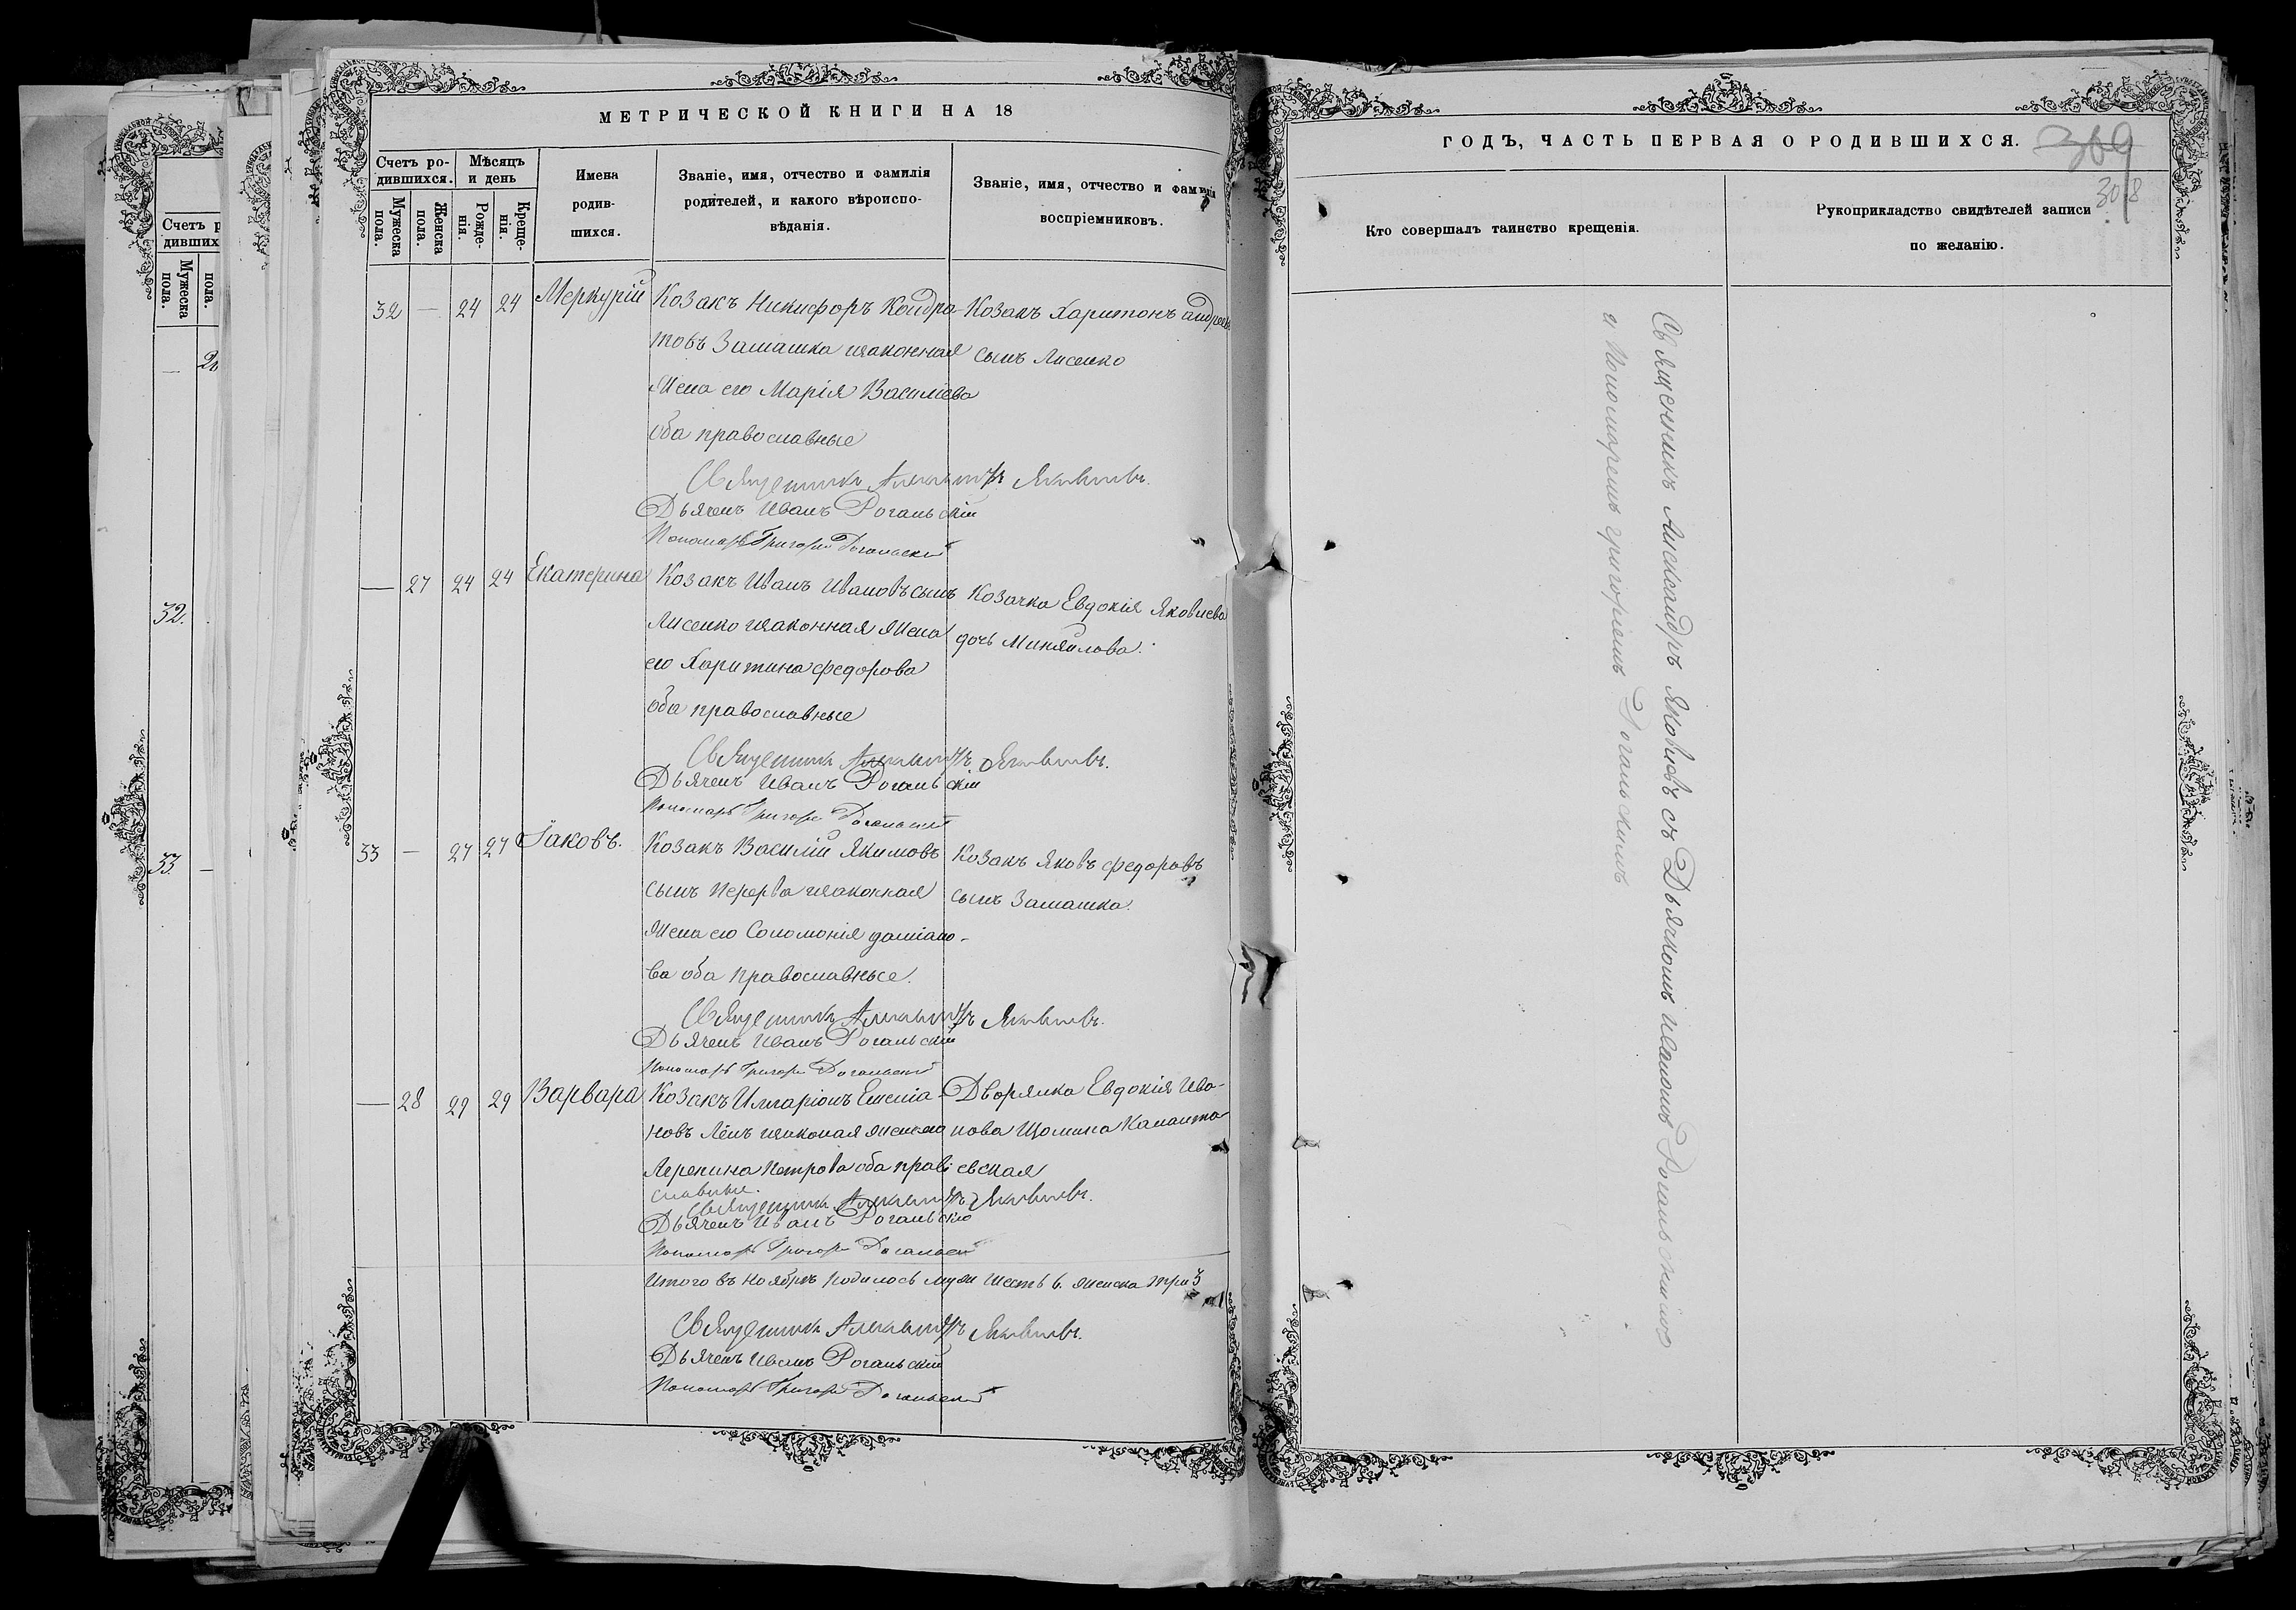 МЕТРИЧЕСКОЙ КНИГИ НА 18
Счетъ ро-
дившихся.
Мѣсяцъ
и день
Мужеска
пола.
Женска
пола.
Рожде-
нія.
Креще-
нія.
Имена
родив-
шихся.
Званіе, имя, отчество и фамилія
родителей, и какого вѣроиспо-
вѣданія.
Званіе, имя, отчество и фамилія
воспріемниковъ.
32 — 24 24 Меркурій
Козакъ Никифоръ Кондра-
товъ Замашка изаконная
жена его Марія Василіева
оба православные
Козакъ Харитонъ андреевъ
сынъ Лисенко
Священникъ Александръ Яковлевъ.
Дьячекъ Иванъ Рогальскій
Пономарь Григорій Рогальскій
— 27 24 24 Екатерина
Козакъ Иванъ Ивановъ сынъ
Лисенко изаконная жена
его Харитина федорова
оба православные
Козачка Евдокія Яковлева
дочь Миняйлова.
Священникъ Александръ Яковлевъ.
Дьячекъ Иванъ Рогальскій
Пономарь Григорій Рогальскій
33 — 27 27 Іаковъ.
Козакъ Василій Якимовъ
сынъ Перерва изаконная
жена его Соломонія даміано-
ва оба православные.
Козакъ Яковъ федоровъ
сынъ Замашка.
Священникъ Александръ Яковлевъ.
Дьячекъ Иванъ Рогальскій
Пономарь Григорій Рогальскій
— 28 29 29 Варвара
Козакъ Илларіонъ
новъ изаконая жена его
Петрова оба право
славные.
Дворянка Евдокія Ива-
нова
евская
Священникъ Александръ Яковлевъ.
Дьячекъ Иванъ Рогальскій
Пономарь Григорій Рогальскій
Итого въ ноябрѣ родилось муж шесть 6. женска три 3
Священникъ Александръ Яковлевъ.
Дьячекъ Иванъ Рогальскій
Пономарь Григорій Рогальскій
ГОДЪ, ЧАСТЬ ПЕРВАЯ О РОДИВШИХСЯ.
369
308
Кто совершалъ таинство крещенія.
Рукоприкладство свидѣтелей записи
по желанію.
Священникъ Александръ Яковлевъ съ Дьячкомъ иваномъ Рогальскимъ
и Пономаремъ григоріемъ Рогальскимъ
Счетъ р
дивших
Мужеска
пола.
пола.
32.
33.